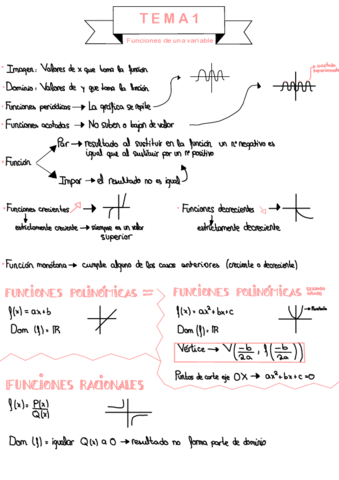 TEMA 1
Funciones de una variable
· Imagen: Valores de x que toma la función
· Dominio: Valores de y que toma la función
· Funciones periódicas → La gráfica se repite
· Funciones acotadas → No suben o bajan de valor
· Función
Par → resultado al sustituir en la función un nº negativo es
igual que al sustituir por un nº positivo
Impar → el resultado no es igual
· Funciones crecientes
estrictamente creciente → siempre es un valor
superior
· Funciones decrecientes
estrictamente decreciente
· Función monótona → cumple alguno de los casos anteriores (creciente o decreciente)
FUNCIONES POLINÓMICAS
f(x) = ax+b
Dom (f) = IR
FUNCIONES POLINÓMICAS SEGUNDO GRADO
f(x) = ax²+bx+c
→ Parábola
Dom (f) = IR
Vértice → V(-b/2a , f(-b/2a))
Puntos de corte eje OX → ax²+bx+c=0
FUNCIONES RACIONALES
f(x) = P(x)/Q(x)
Dom (f) = igualar Q(x) a 0 → resultado no forma parte de dominio